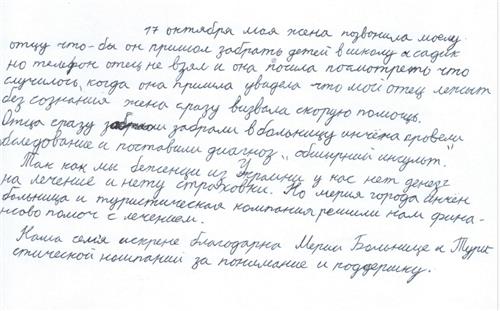 17 октября моя жена позвонила моему
отцу что-бы он пришол забрать детей в школу и садик
но телефон отец не взял и она пошла посмотреть что
случилось, когда она пришла увидела что мой отец лежыт
без сознания жена сразу визвала скорую помощь.
Отца сразу забрали в больницу инчёна провели
обледование и поставили диагноз „обширний инсульт."
Так как ми беженци из Украини у нас нет денег
на лечение и нету страховки. Но мерия города инчен
больница и туристическая компания решили нам фина-
нсово помоч с лечением.
Наша семя искрене благодарна Мерии Больнице и Турис
стической компаний за понимание и поддержку.